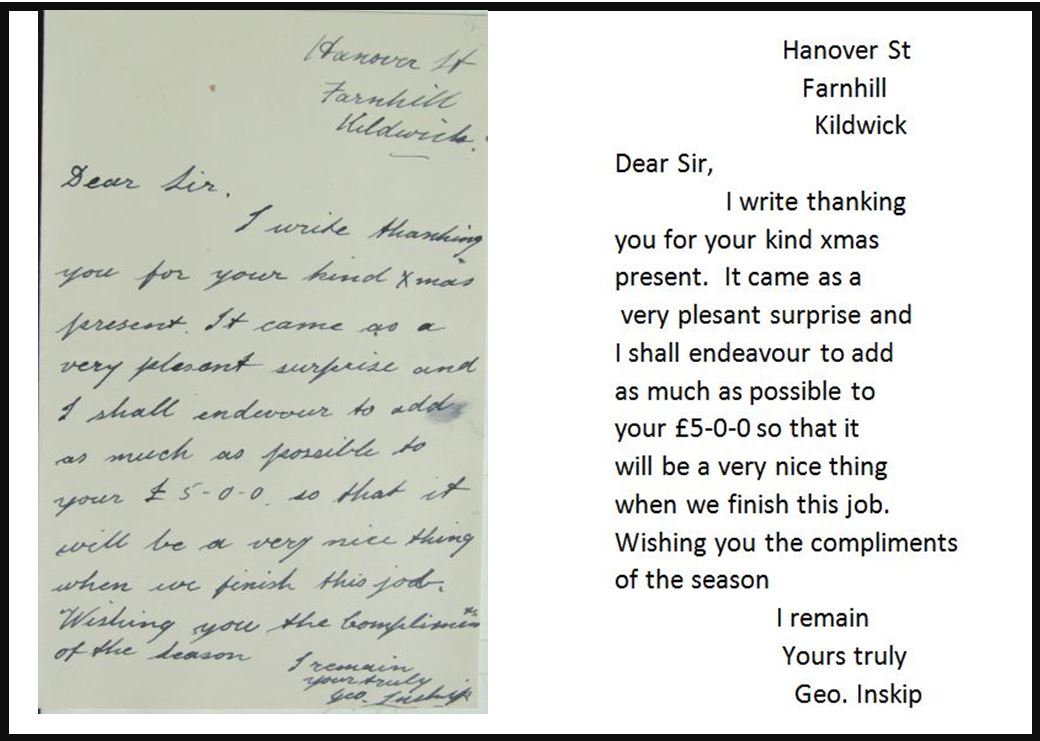 Hanover St
Farnhill
Kildwick.
Dear Sir.
I write thanking
you for your kind Xmas
present. It came as a
very plesent surprise and
I shall endevour to add
as much as possible to
your £5-0-0 so that it
will be a very nice thing
when we finish this job.
Wishing you the Compliments
of the season
I remain
your truly
Geo. Inskip
Hanover St
Farnhill
Kildwick
Dear Sir,
I write thanking
you for your kind xmas
present. It came as a
very plesant surprise and
I shall endeavour to add
as much as possible to
your £5-0-0 so that it
will be a very nice thing
when we finish this job.
Wishing you the compliments
of the season
I remain
Yours truly
Geo. Inskip